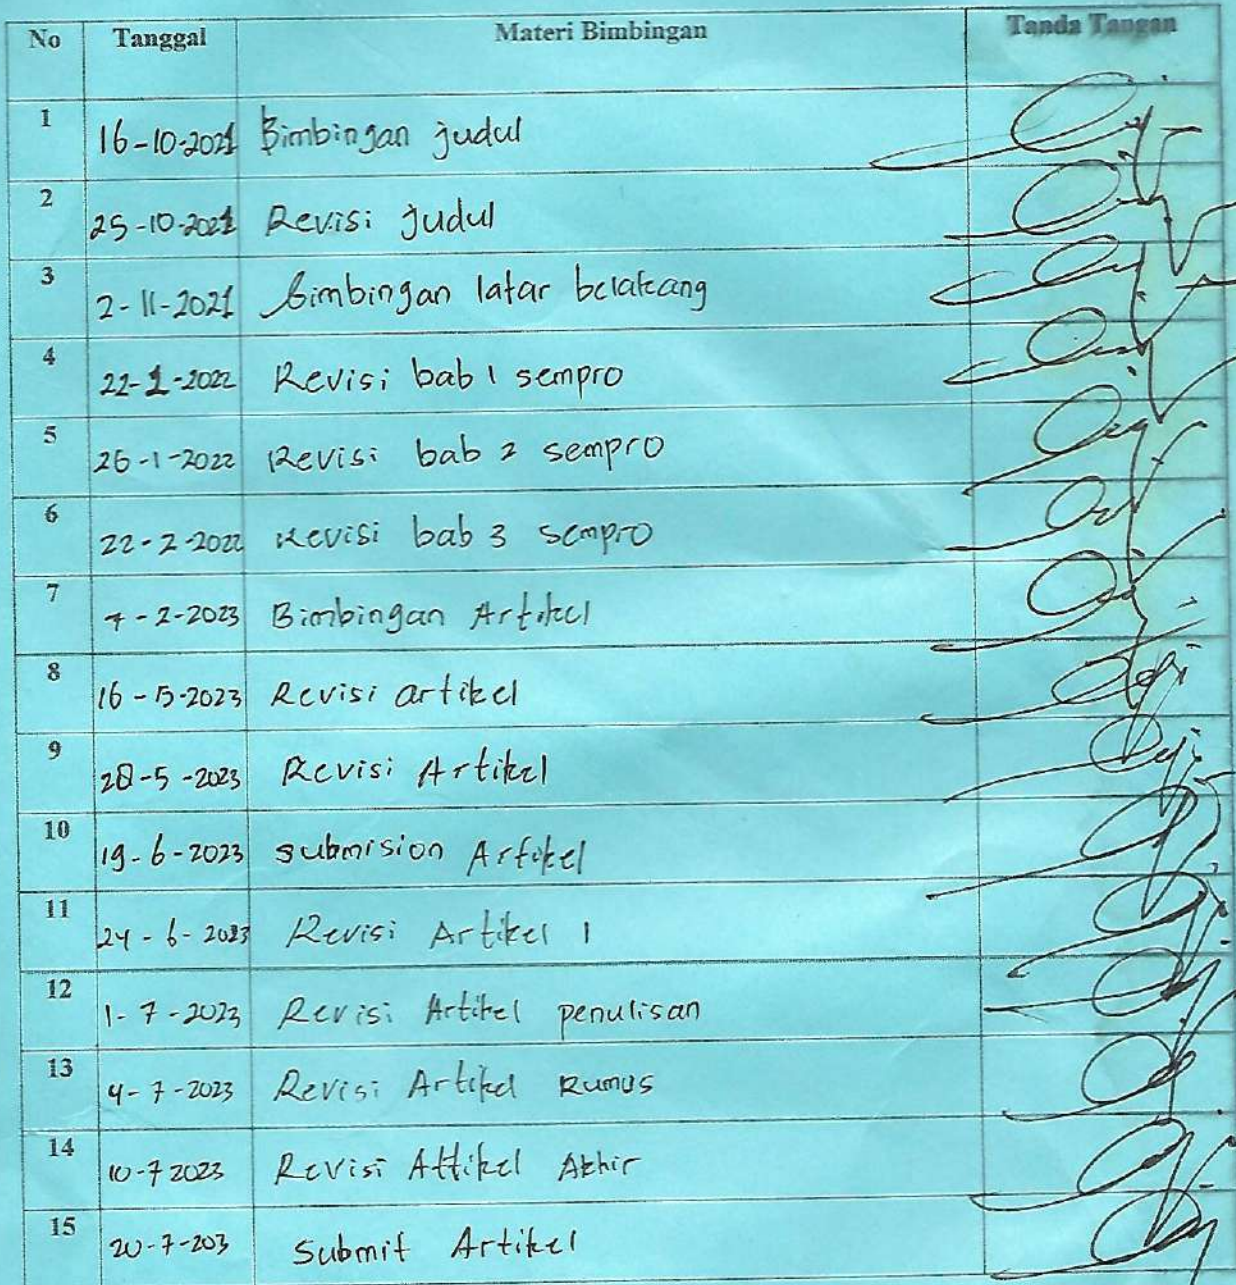 No Tanggal Materi Bimbingan Tanda Tangan
1 16-10-2021 Bimbingan judul
2 25-10-2021 Revisi judul
3 2-11-2021 bimbingan latar belakang
4 22-1-2022 Revisi bab 1 sempro
5 26-1-2022 Revisi bab 2 sempro
6 22-2-2022 Revisi bab 3 sempro
7 7-2-2023 Bimbingan Artikel
8 16-5-2023 Revisi artikel
9 28-5-2023 Revisi Artikel
10 19-6-2023 submision Artikel
11 24-6-2023 Revisi Artikel 1
12 1-7-2023 Revisi Artikel penulisan
13 4-7-2023 Revisi Artikel Rumus
14 10-7 2023 Revisi Attikel Akhir
15 20-7-203 Submit Artikel